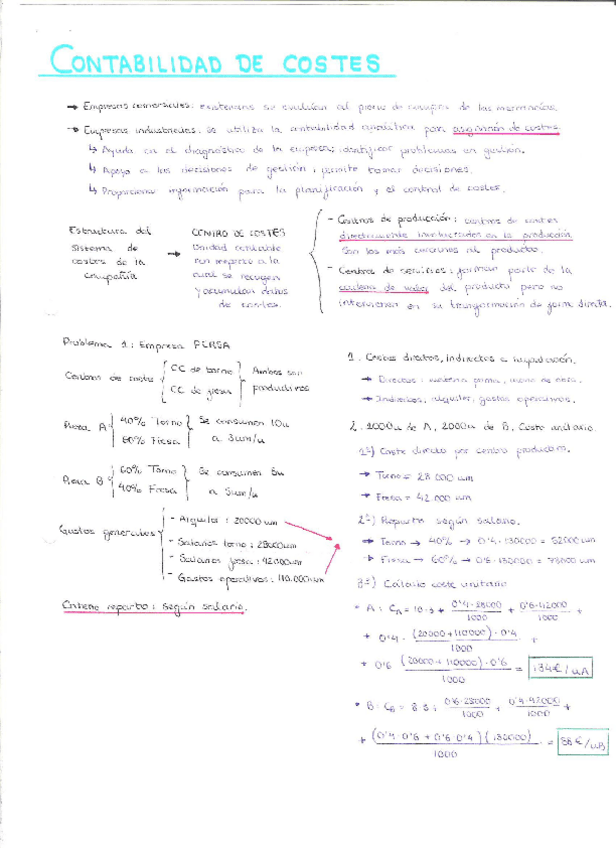 CONTABILIDAD DE COSTES
→ Empresas comerciales: existencias se evalúan al precio de compra de las mercancías.
→ Empresas industriales: se utiliza la contabilidad analítica para asignación de costes.
↳ Ayuda en el diagnóstico de la empresa; identificar problemas en gestión.
↳ Apoyo a las decisiones de gestión; permite tomar decisiones.
↳ Proporciona información para la planificación y el control de costes.
Estructura del
Sistema de
costes de la
compañía
→ CENTRO DE COSTES
Unidad contable
con respecto a la
cual se recogen
y acumulan datos
de costes.
- Centros de producción: centros de costes
directamente involucrados en la producción
Son los más cercanos al producto.
- Centros de servicios: forman parte de la
cadena de valor del producto pero no
intervienen en su transformación de forma directa.
Problema 1: Empresa PERSA
Centros de costes
CC de torno
CC de fresa
Ambos son
productivos
Pieza A
40% Torno
60% Fresa
Se consumen 10u
a 3um/u
Pieza B
60% Torno
40% Fresa
Se consumen 8u
a 3um/u
Gastos generales
- Alquiler: 20000 um
- Salarios torno: 28000um
- Salarios fresa: 42000um
- Gastos operativos: 110.000um
Criterio reparto: Según salario.
1. Costes directos, indirectos e imputación.
→ Directos: materia prima, mano de obra.
→ Indirectos, alquiler, gastos operativos.
2. 1000u de A, 2000u de B. Coste unitario.
1º) Coste directo por centro productivo.
→ Torno = 28 000 um
→ Fresa = 42 000 um
2º) Reparto según salario.
→ Torno → 40% → 0'4·130000 = 52000 um
→ Fresa → 60% → 0'6·130000 = 78000 um
3º) Cálculo coste unitario
• A: CA = 10·3 + 0'4·28000/1000 + 0'6·42000/1000 +
+ 0'4 · (20000+110000)·0'4/1000 +
+ 0'6 (20000+110000)·0'6/1000 = 134€/uA
• B: CB = 8·3 + 0'6·28000/1000 + 0'4·42000/1000 +
+ (0'4·0'6 + 0'6·0'4)(130000)/1000 = €/uB